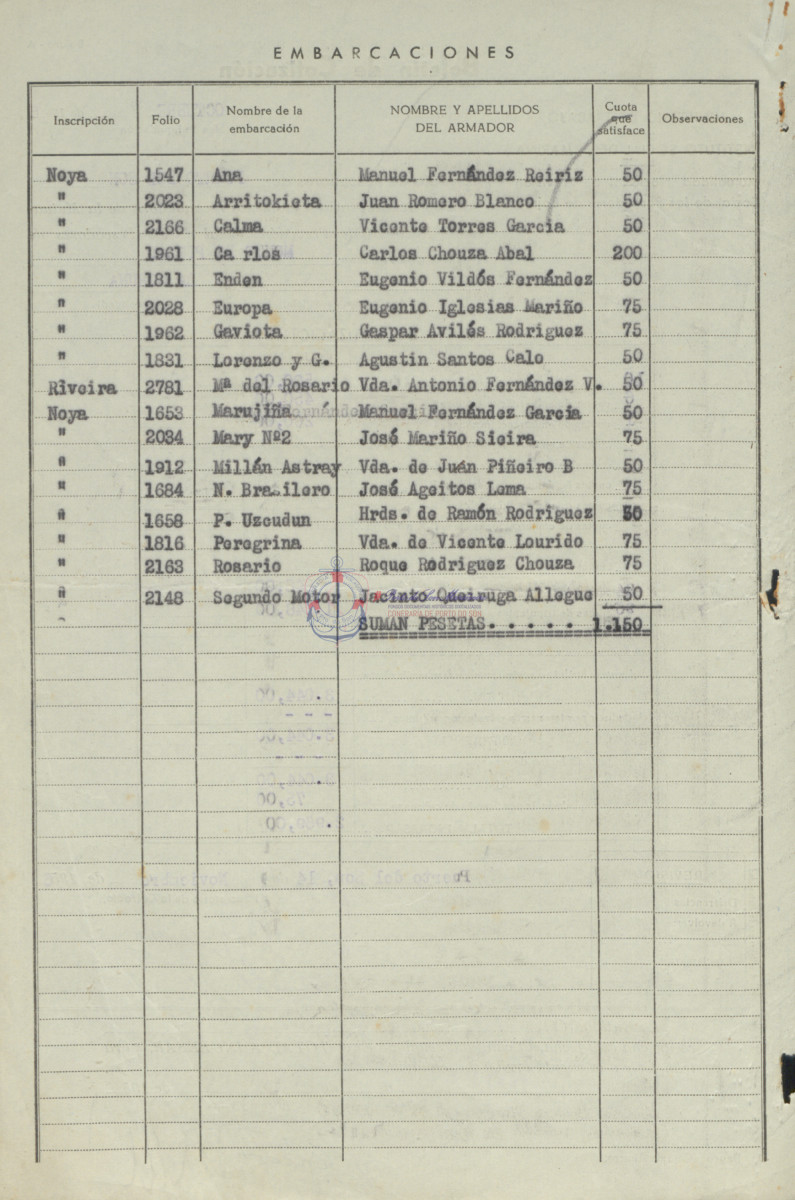 EMBARCACIONES
Inscripción Folio Nombre de la embarcación NOMBRE Y APELLIDOS DEL ARMADOR Cuota que satisface Observaciones
Noya 1547 Ana Manuel Fernández Reiriz 50
" 2023 Arritokieta Juan Romero Blanco 50
" 2166 Calma Vicente Torres Garcia 50
" 1961 Ca rlos Carlos Chouza Abal 200
" 1811 Enden Eugenio Vildós Fernández 50
" 2028 Europa Eugenio Iglesias Mariño 75
" 1962 Gaviota Gaspar Avilés Rodriguez 75
" 1831 Lorenzo y G. Agustin Santos Calo 50
Riveira 2781 Mª del Rosario Vda. Antonio Fernández V. 50
Noya 1653 Marujiña Manuel Fernández Garcia 50
" 2084 Mary Nº2 José Mariño Sieira 75
" 1912 Millán Astray Vda. de Juan Piñeiro B 50
" 1684 N. Brasilero José Ageitos Lema 75
" 1658 P. Uzcudun Hrds. de Ramón Rodriguez 50
" 1816 Peregrina Vda. de Vicente Lourido 75
" 2163 Rosario Roque Rodriguez Chouza 75
" 2148 Segundo Motor Jacinto Queiruga Allegue 50
CONFRARÍA DE PORTO DO SON
SUMAN PESETAS. . . . . 1.150